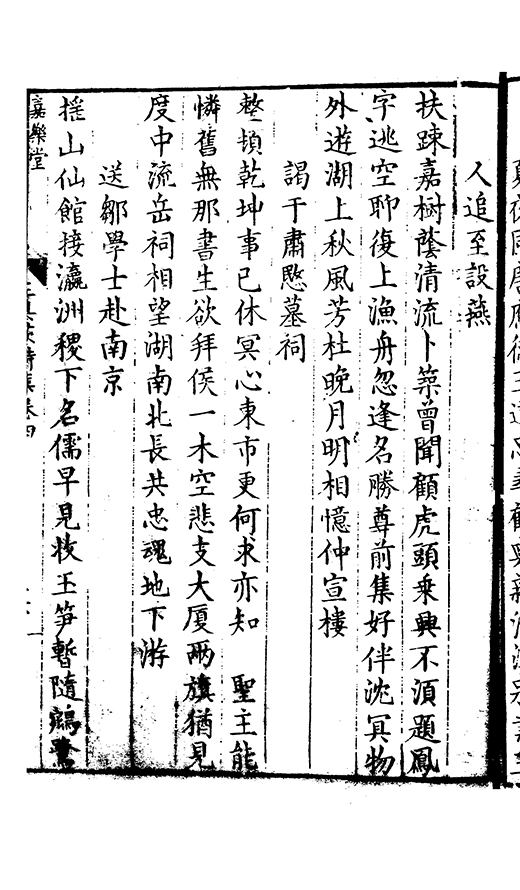 人追至設燕
扶踈嘉樹蔭清流卜築曾聞顧虎頭乘興不湏題鳳
字逃空聊復上漁舟忽逢名勝尊前集好伴沈冥物
外遊湖上秋風芳杜晚月明相憶仲宣樓
謁于肅愍墓祠
整頓乾坤事已休冥心東市更何求亦知　聖主能
憐舊無那書生欲拜侯一木空悲支大厦兩旗猶見
度中流岳祠相望湖南北長共忠魂地下游
送鄒學士赴南京
揺山仙館接瀛洲稷下名儒早見收玉笋暫隨鵷鷺
嘉樂堂
詩集卷四